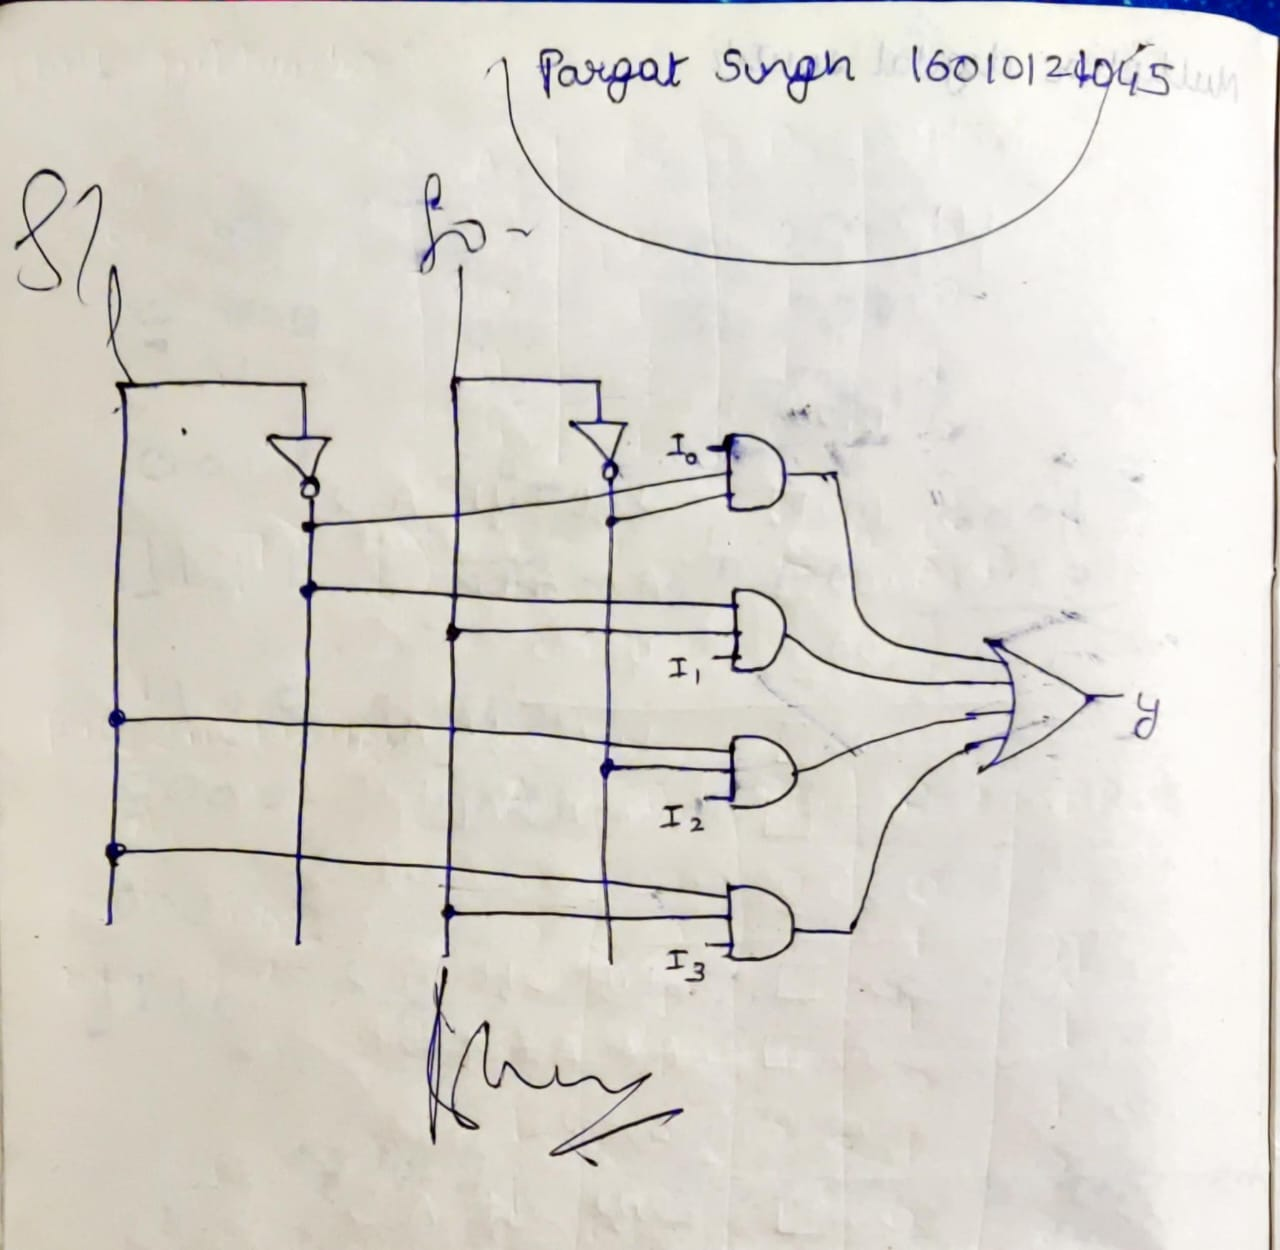 Pargat Singh 16010121045
S1
S0
I0
I1
I2
I3
y